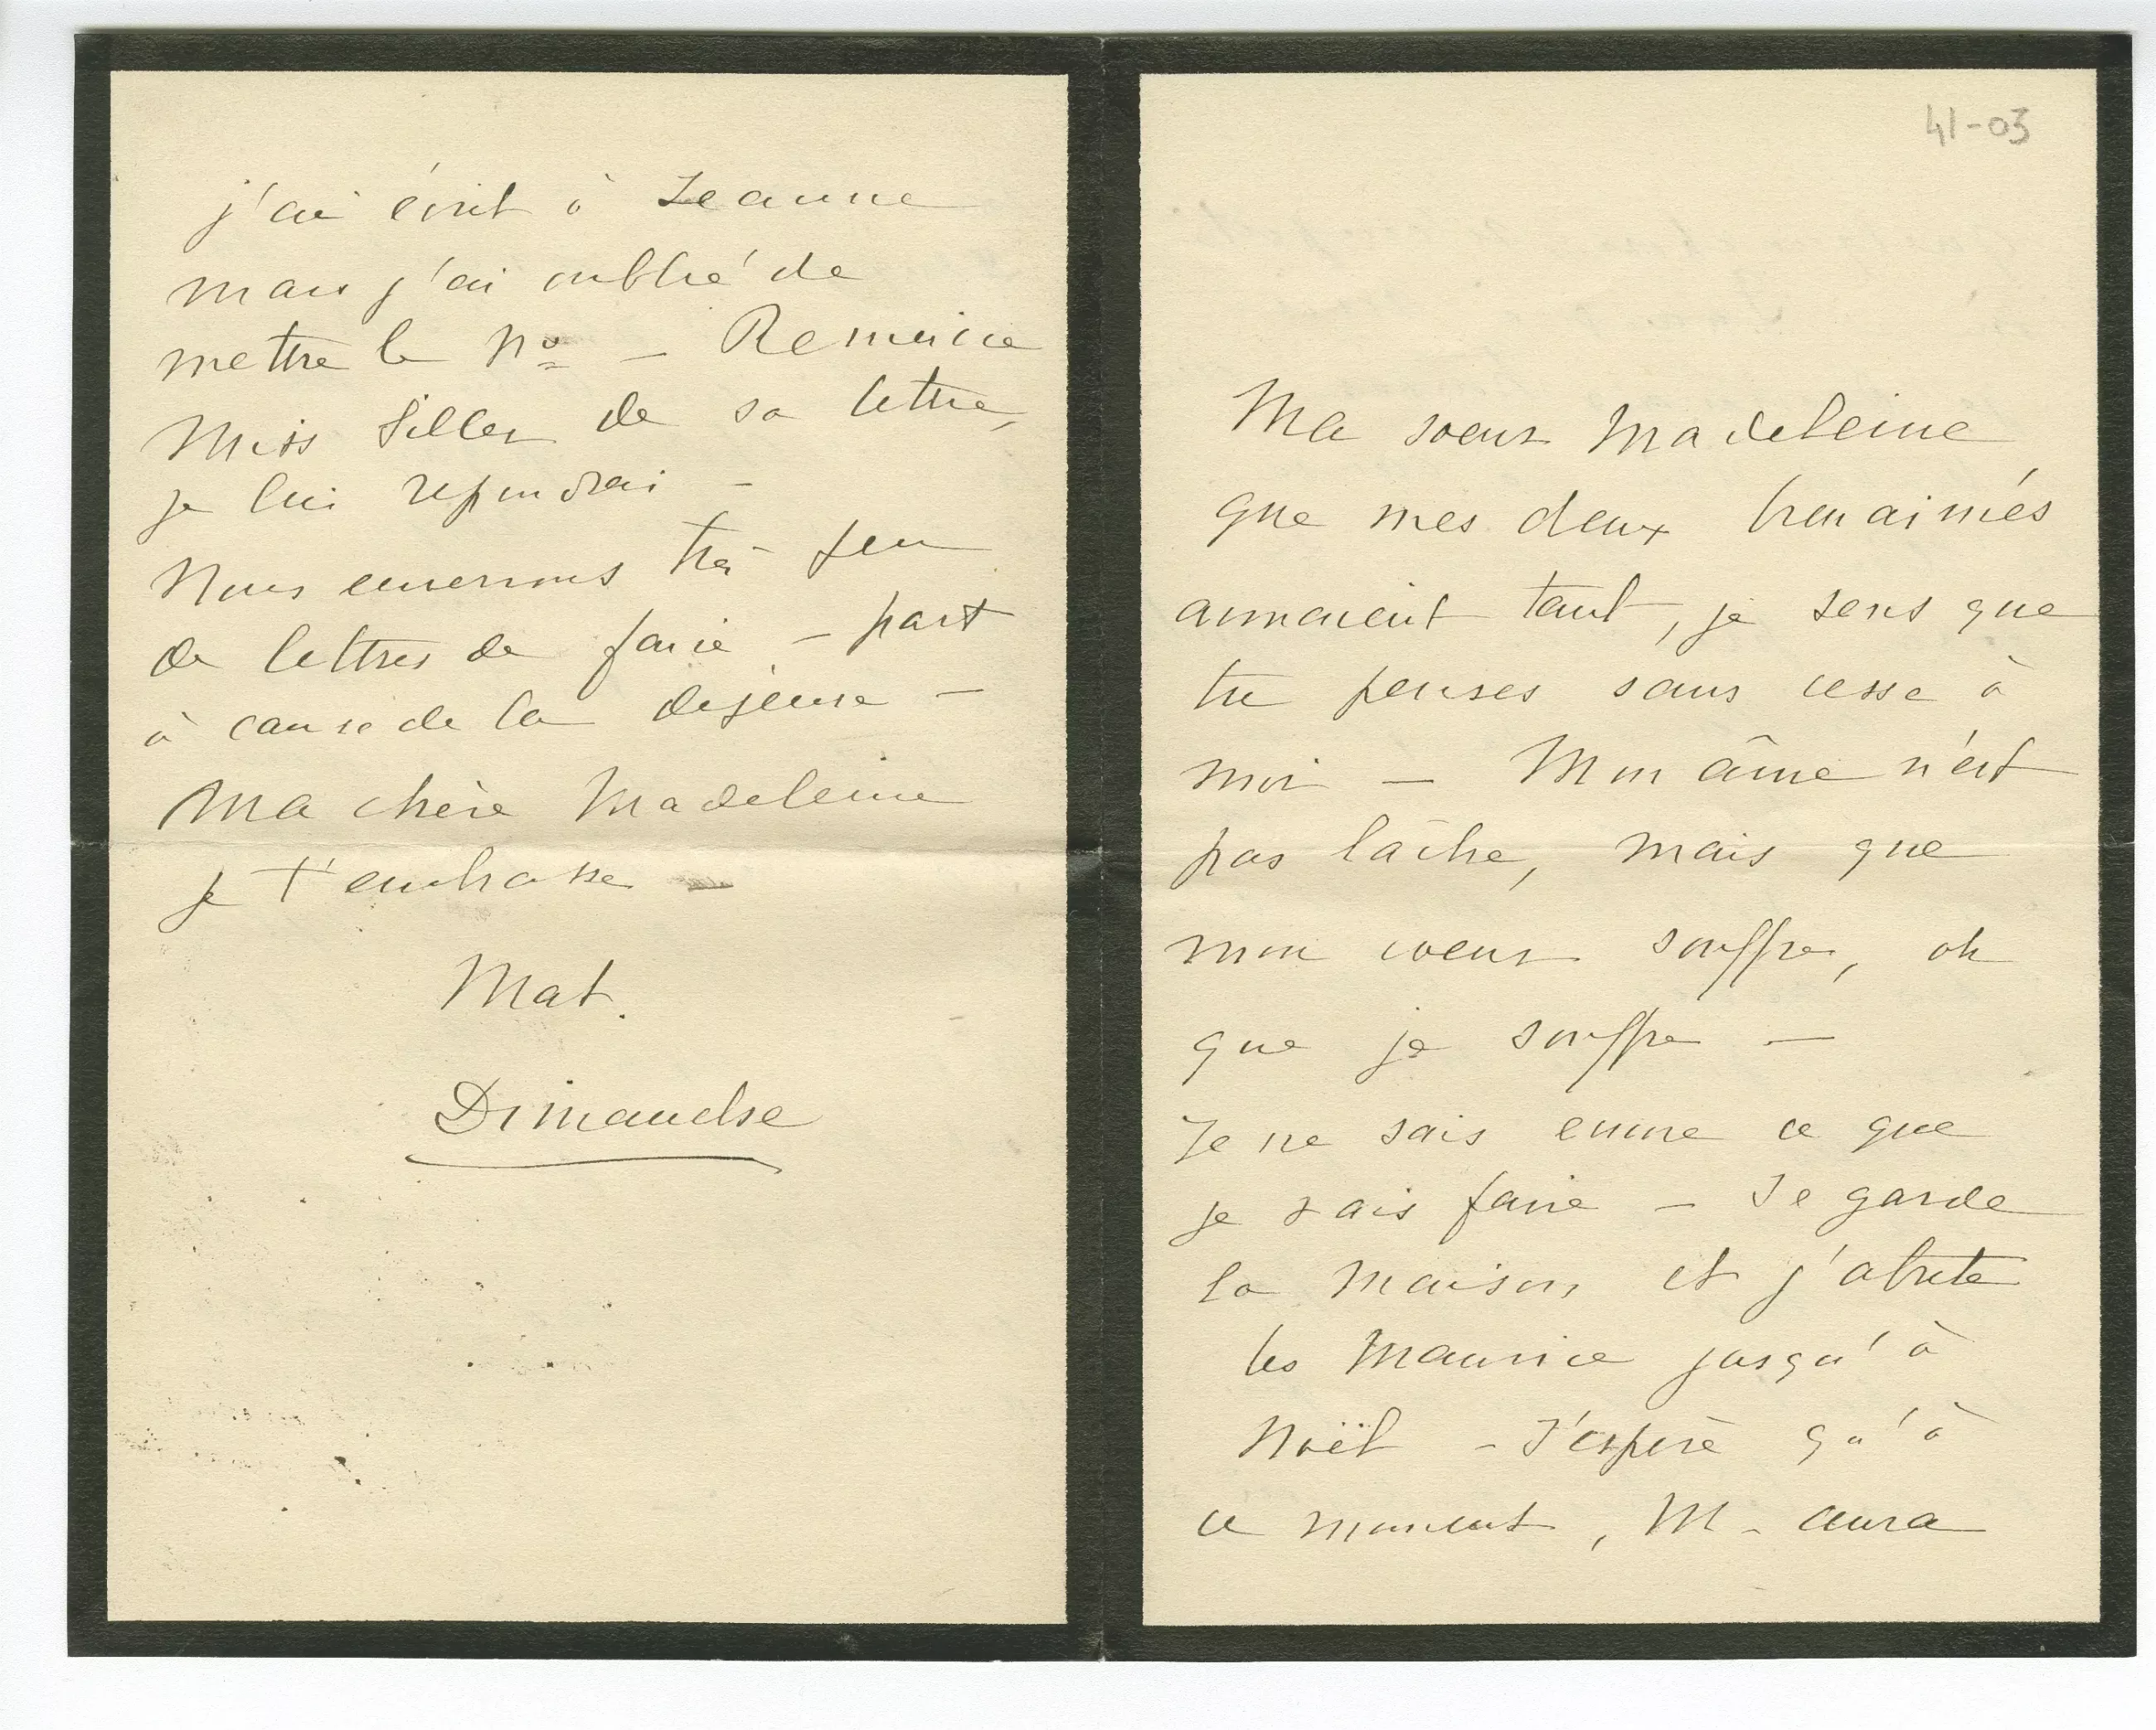 j'ai écrit à Jeanne
mais j'ai oublié de
mettre le No – Remercie
Miss Siller de sa lettre,
je lui repondrai –
Nous enverrons très peu
de lettres de faire – part
à cause de la dépense –
Ma chère Madeleine
je t'embrasse –
Mat.
Dimanche
41-03
Ma soeur Madeleine
que mes deux bien aimés
aimaient tant, je sens que
tu penses sans cesse à
moi – Mon âme n'est
pas lâche, mais que
mon coeur souffre, oh
que je souffre –
Je ne sais encore ce que
je vais faire – Je garde
la maison, et j'abrite
les Maurice jusqu'à
Noël – J'espère qu'à
ce moment, M – aura